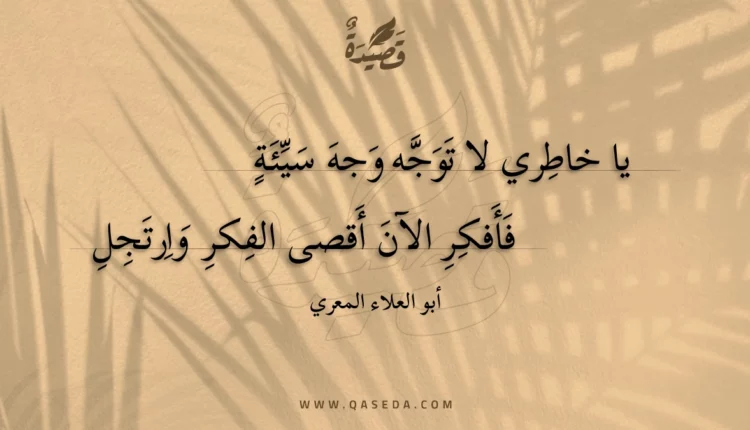 قَصِيْدَةٌ
يا خاطِري لا تَوَجَّه وَجهَ سَيِّئَةٍ
فَأَفكِرِ الآنَ أَقصى الفِكرِ وَاِرتَجِلِ
أبو العلاء المعري
WWW.QASEDA.COM